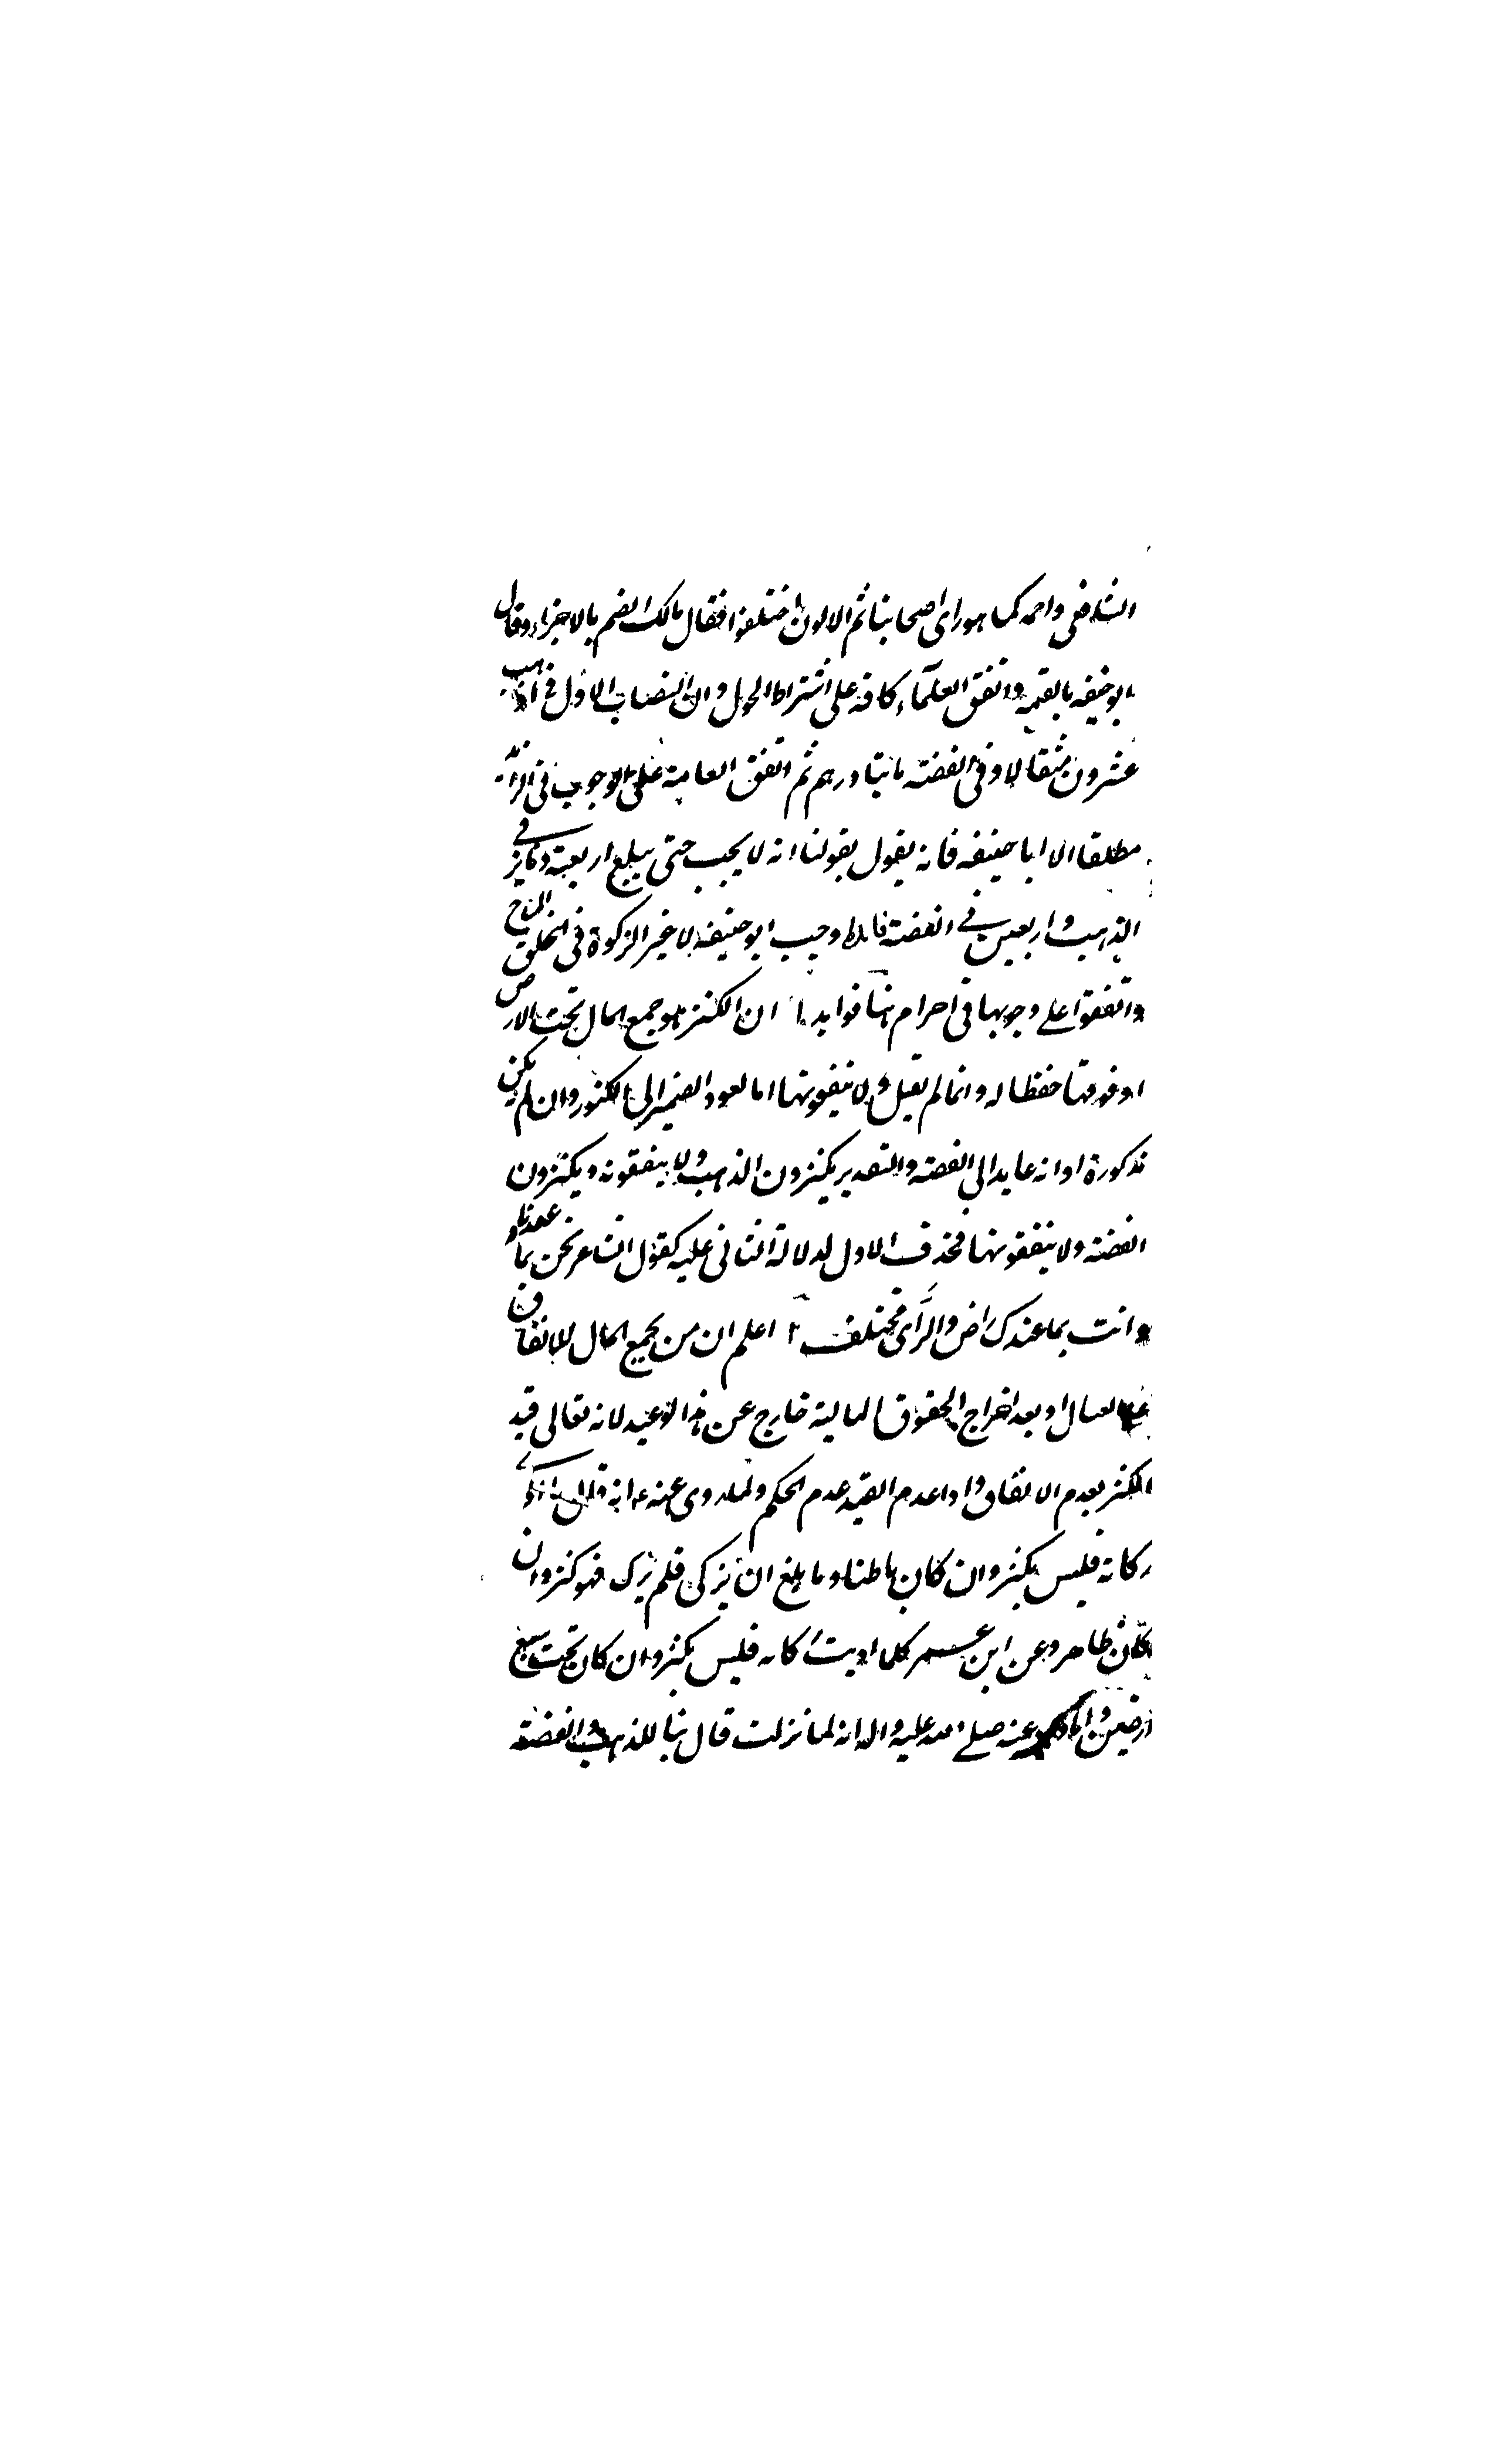 الشافعى واحمد كما هو راى اصحابنا ثم الاولون اختلفوا فقال مالك الضم بالاجزاء وقال
ابو حنيفه بالقيمه واتفق العلمآء كافه على اشتراط الحول وان النصاب الاول فى الذهب
عشرون مثقالا وفى الفضته مائتا درهم ثم اتفق العامة على الوجوب فى الزائد
مطلقا الا ابا حنيفه فانه يقول بقولنا انه لا يجب حتى يبلغ اربعة دنانير فى
الذهب واربعين فى الفضته اوجب ابو حنيفه لا غير الزكوة فى الحلى المباح
واتفقوا على وجوبها فى احرام هنا فوايد ا ان الكنز هو جمع المال تحت الارض
او فوقها حفظا له وانما لم يقل ولا ينفقونهما اما لعود الضمير الى الكنوز وان لم يكن
مذكورة او انه عايد الى الفضته والتقدير يكنزون الذهب ولا ينفقونه ويكنزون
الفضته ولا ينفقونها فحذف الاول لدلالة الثانى عليه كقول الشاعر نحن بما عندنا و
وانت بما عندك راض والرأى مختلف ٢ اعلم ان من يجمع المال للانفاق
على العيال او بعد اخراج الحقوق المالية خارج عن هذا الوعيد لانه تعالى قيد
الكنز بعدم الانفاق واذا عدم القيد عدم الحكم ولما روى عنه ع انه قال
زكاته فليس بكنز وان كان باطنا وما بلغ ان يزكى فلم يزك فهو كنز وان
كان ظاهر وعن ابن عمر كلما اديت زكاته فليس بكنز وان كان تحت سبع
ارضين عنه صلى الله عليه واله انه لما نزلت قال تبا للذهب والفضته